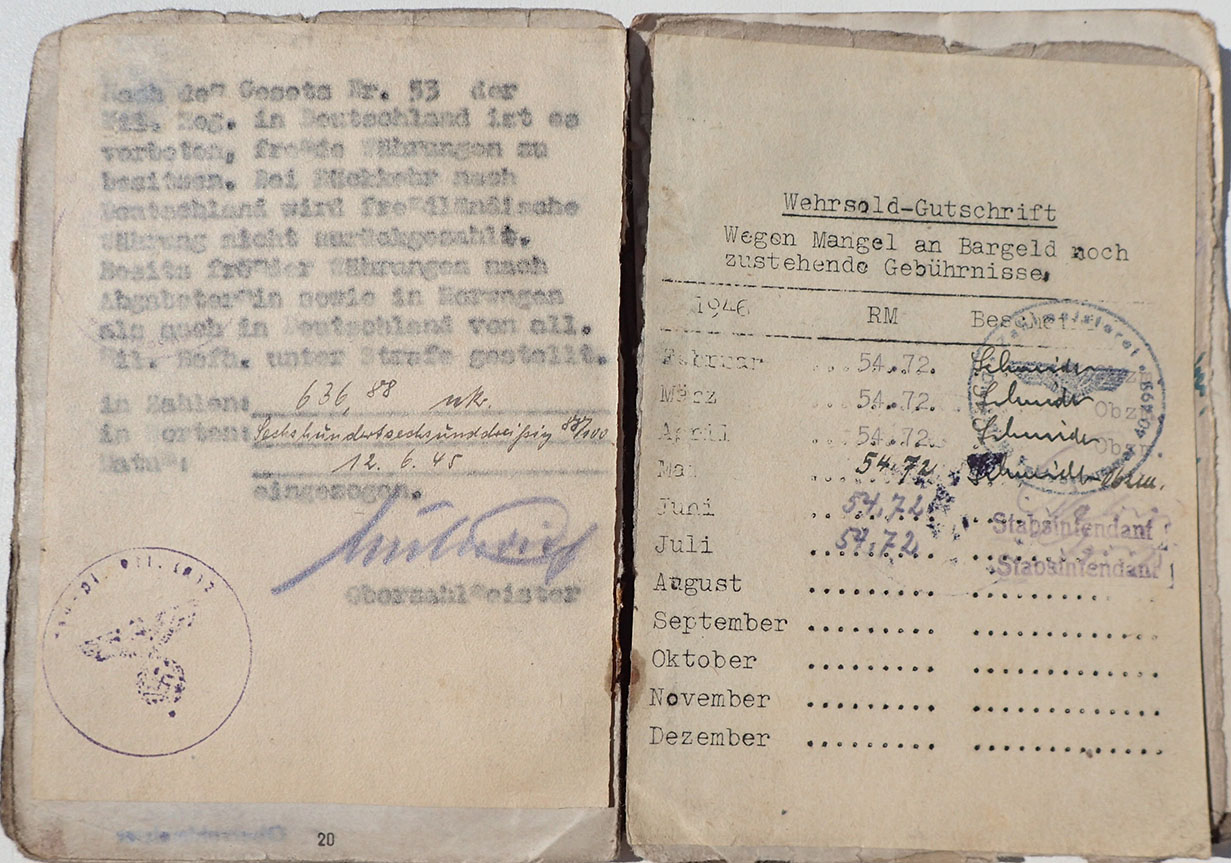 Nach dem Gesetz Nr. 53 der
Mil. Reg. in Deutschland ist es
verboten, fremde Währungen zu
besitzen. Bei Rückkehr nach
Deutschland wird fremdländische
Währung nicht zurückgezahlt.
Besitz fremder Währungen nach
Abgabetermin sowie in Norwegen
als auch in Deutschland von all.
Mil. Befh. unter Strafe gestellt.
in Zahlen: 636,88 nkr.
in Worten: Sechshundertsechsunddreißig 88/100
Datum: 12. 6. 45
eingezogen.
Oberzahlmeister
20
Wehrsold-Gutschrift
Wegen Mangel an Bargeld noch
zustehende Gebührnisse.
1946 RM
Februar ...54.72. Schneider
März ...54.72. Schneider Obz
April ...54.72. Schneider Obz
Mai 54.72
Juni 54.72 Stabsintendant
Juli 54.72 Stabsintendant
August
September
Oktober
November
Dezember